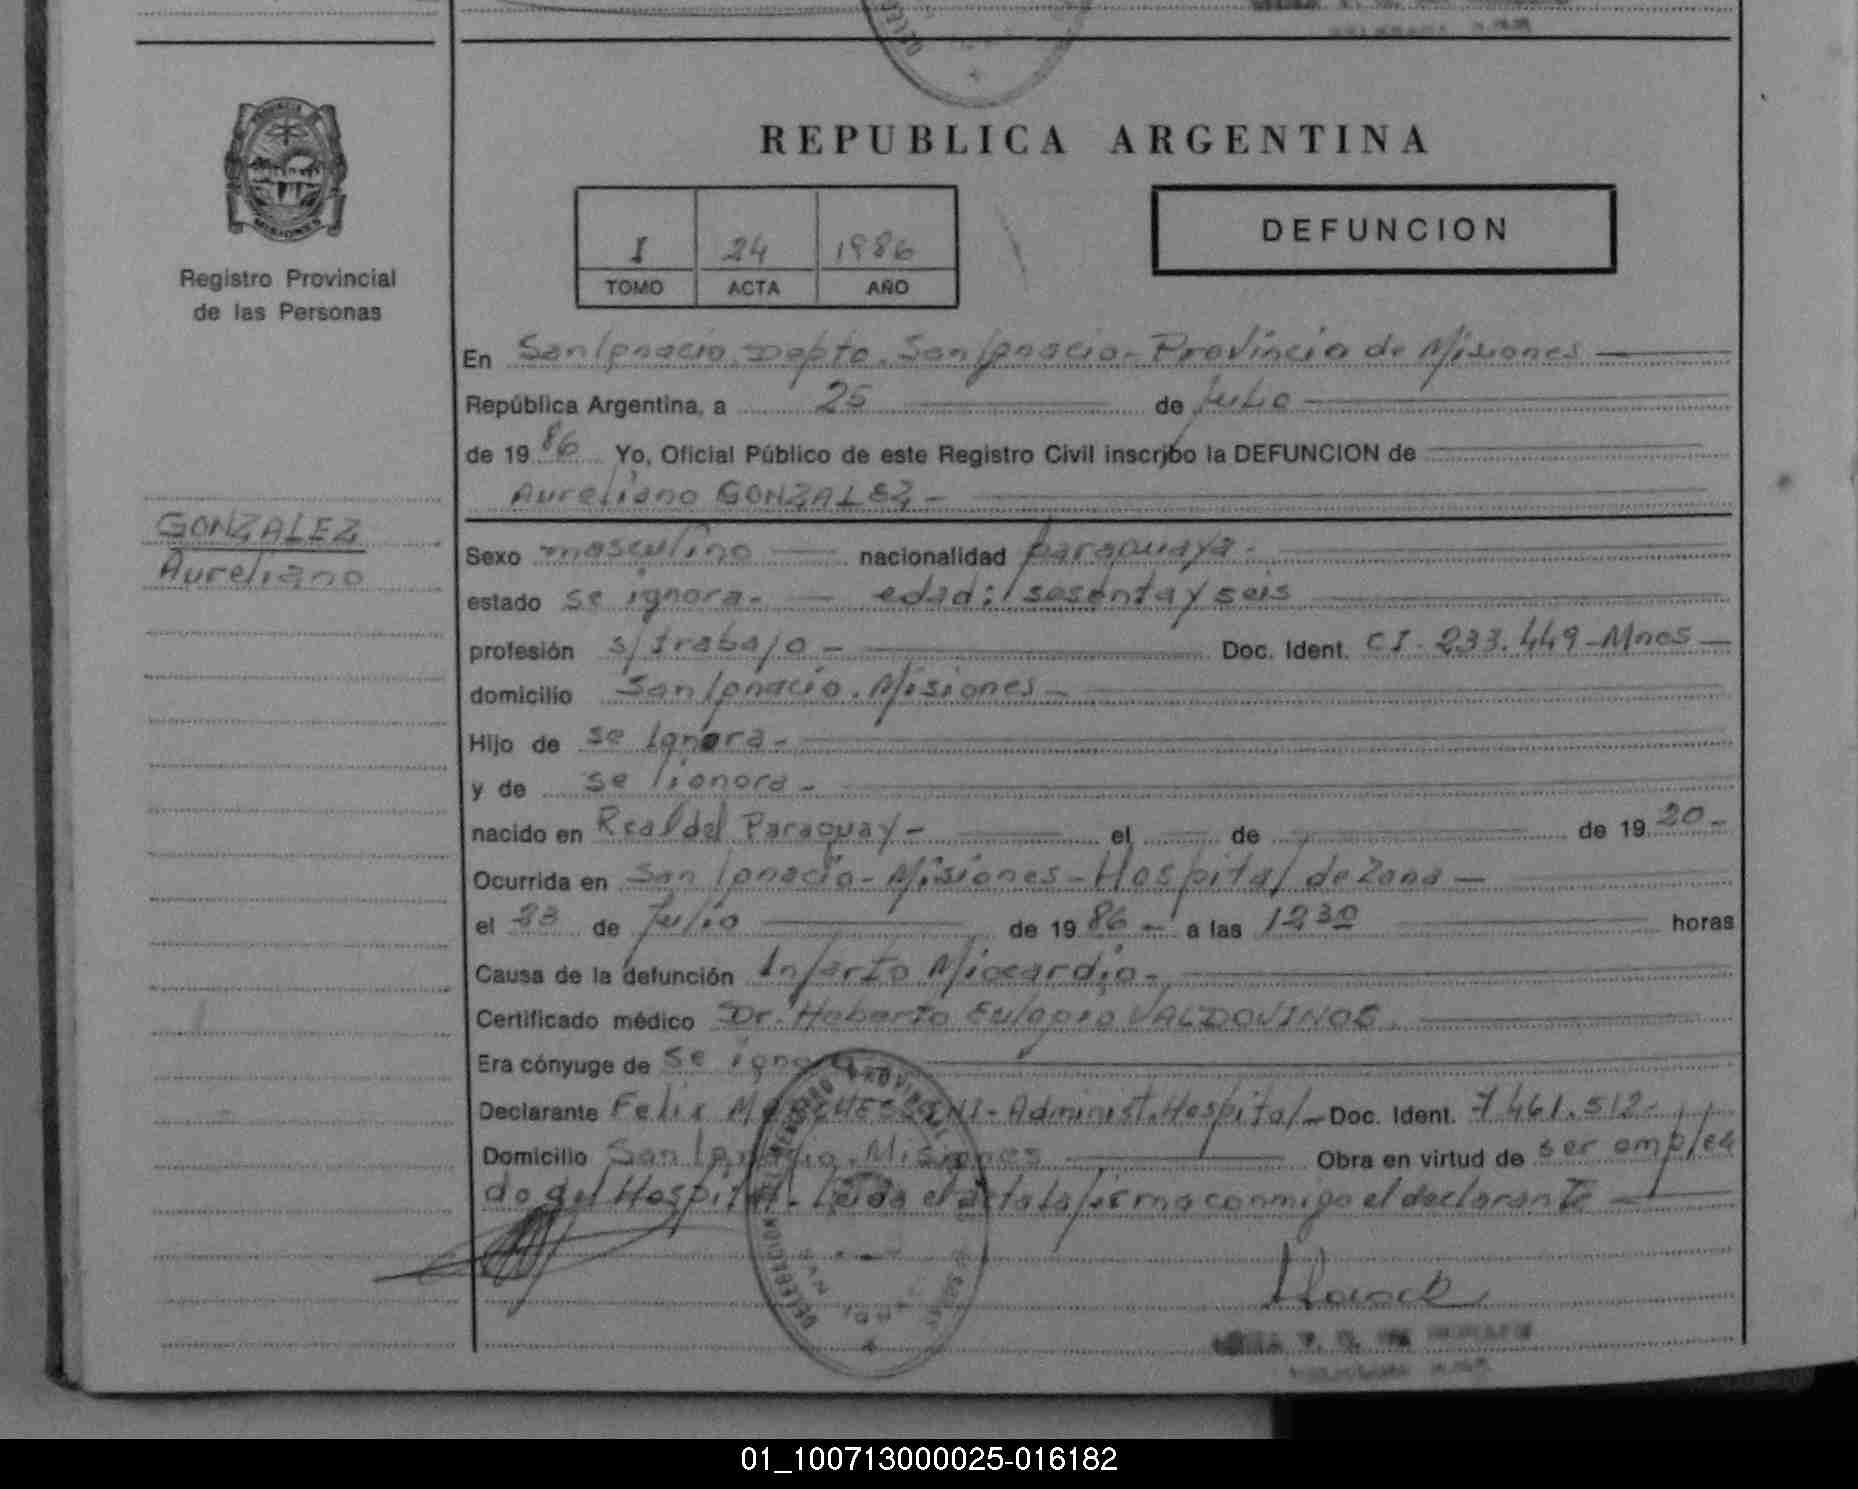 REPUBLICA ARGENTINA
PROVINCIA
MISIONES
Registro Provincial
de las Personas
I 24 1986
TOMO ACTA AÑO
DEFUNCION
En San Ignacio. Depto. San Ignacio - Provincia de Misiones
República Argentina, a 25 de Julio
de 1986 Yo, Oficial Público de este Registro Civil inscribo la DEFUNCION de
Aureliano GONZALEZ -
GONZALEZ
Aureliano
Sexo masculino nacionalidad paraguaya -
estado se ignora - edad: sesenta y seis
profesión s/trabajo - Doc. Ident. CI. 233.449 - Mnes
domicilio San Ignacio. Misiones -
Hijo de se ignora -
y de se ignora -
nacido en Real del Paraguay - el de de 1920 -
Ocurrida en San Ignacio - Misiones - Hospital de Zona -
el 23 de Julio de 1986 - a las 1230 horas
Causa de la defunción Infarto Miocardio -
Certificado médico Dr. VALDOVINOS.
Era cónyuge de se ignora
Declarante Felix - Administ. Hospital - Doc. Ident. 7.461.512 -
Domicilio San Ignacio. Misiones Obra en virtud de ser emplea
do del Hospital. Leida el acta la firma conmigo el declarante
01_100713000025-016182